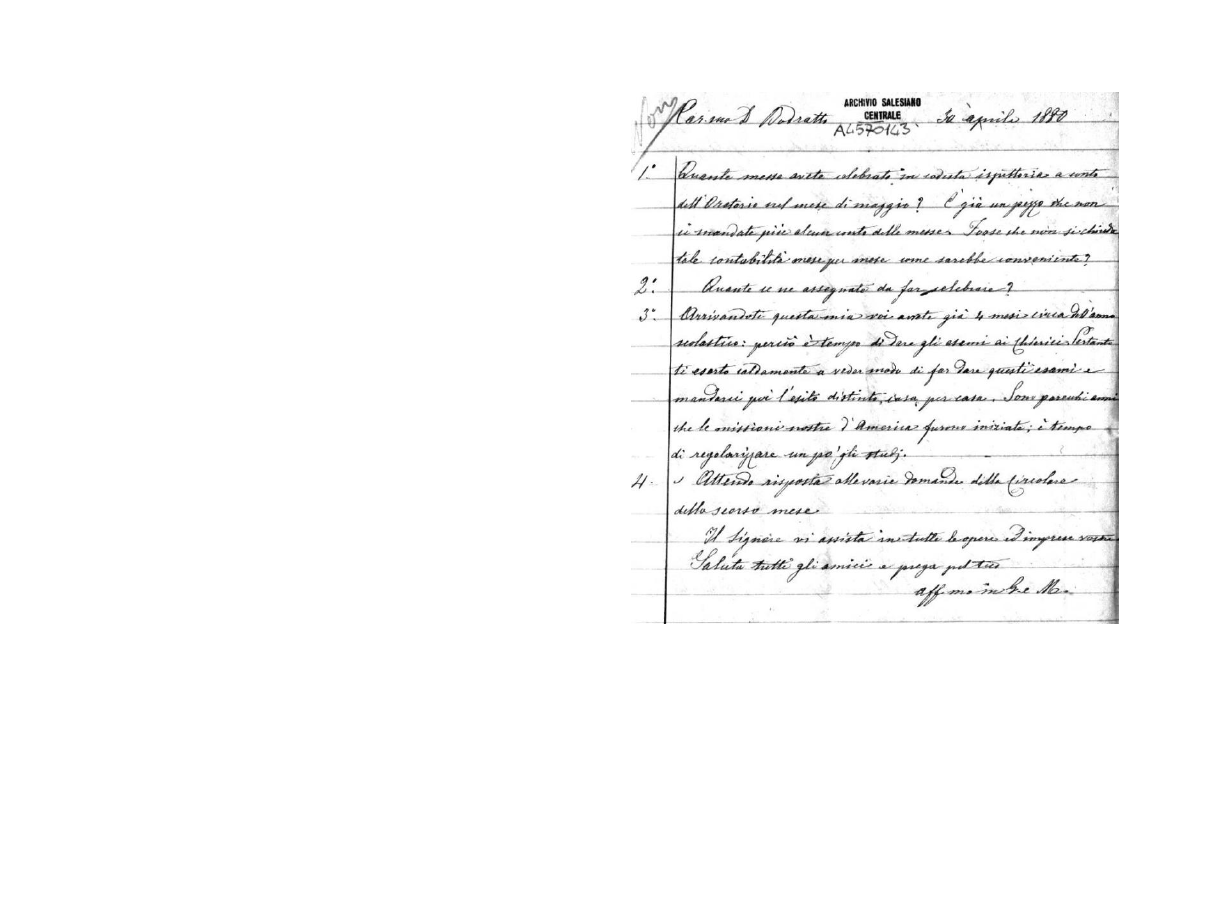 ARCHIVIO SALESIANO
CENTRALE
A4570143
Car.mo D Bodratto 30 aprile 1880
1.° Quante messe avete celebrato in codesta ispettoria a conto
dell'Oratorio nel mese di maggio? È già un pezzo che non
ci mandate più alcun conto delle messe. Forse che non si chiude
tale contabilità mese per mese come sarebbe conveniente?
2.° Quante ce ne assegnate da far celebrare?
3.° Arrivandoti questa mia voi avrete già 4 mesi circa dell'anno
scolastico: perciò è tempo di dare gli esami ai Chierici. Pertanto
ti esorto caldamente a veder modo di far dare questi esami e
mandarci poi l'esito distinto, casa per casa. Sono parecchi anni
che le missioni nostre d'America furono iniziate; è tempo
di regolarizzare un po' gli studj.
4. Attendo risposta alle varie domande della Circolare
dello scorso mese
Il Signore vi assista in tutte le opere ed imprese vostre
Saluta tutti gli amici e prega pel tuo
aff.mo in G. e M.